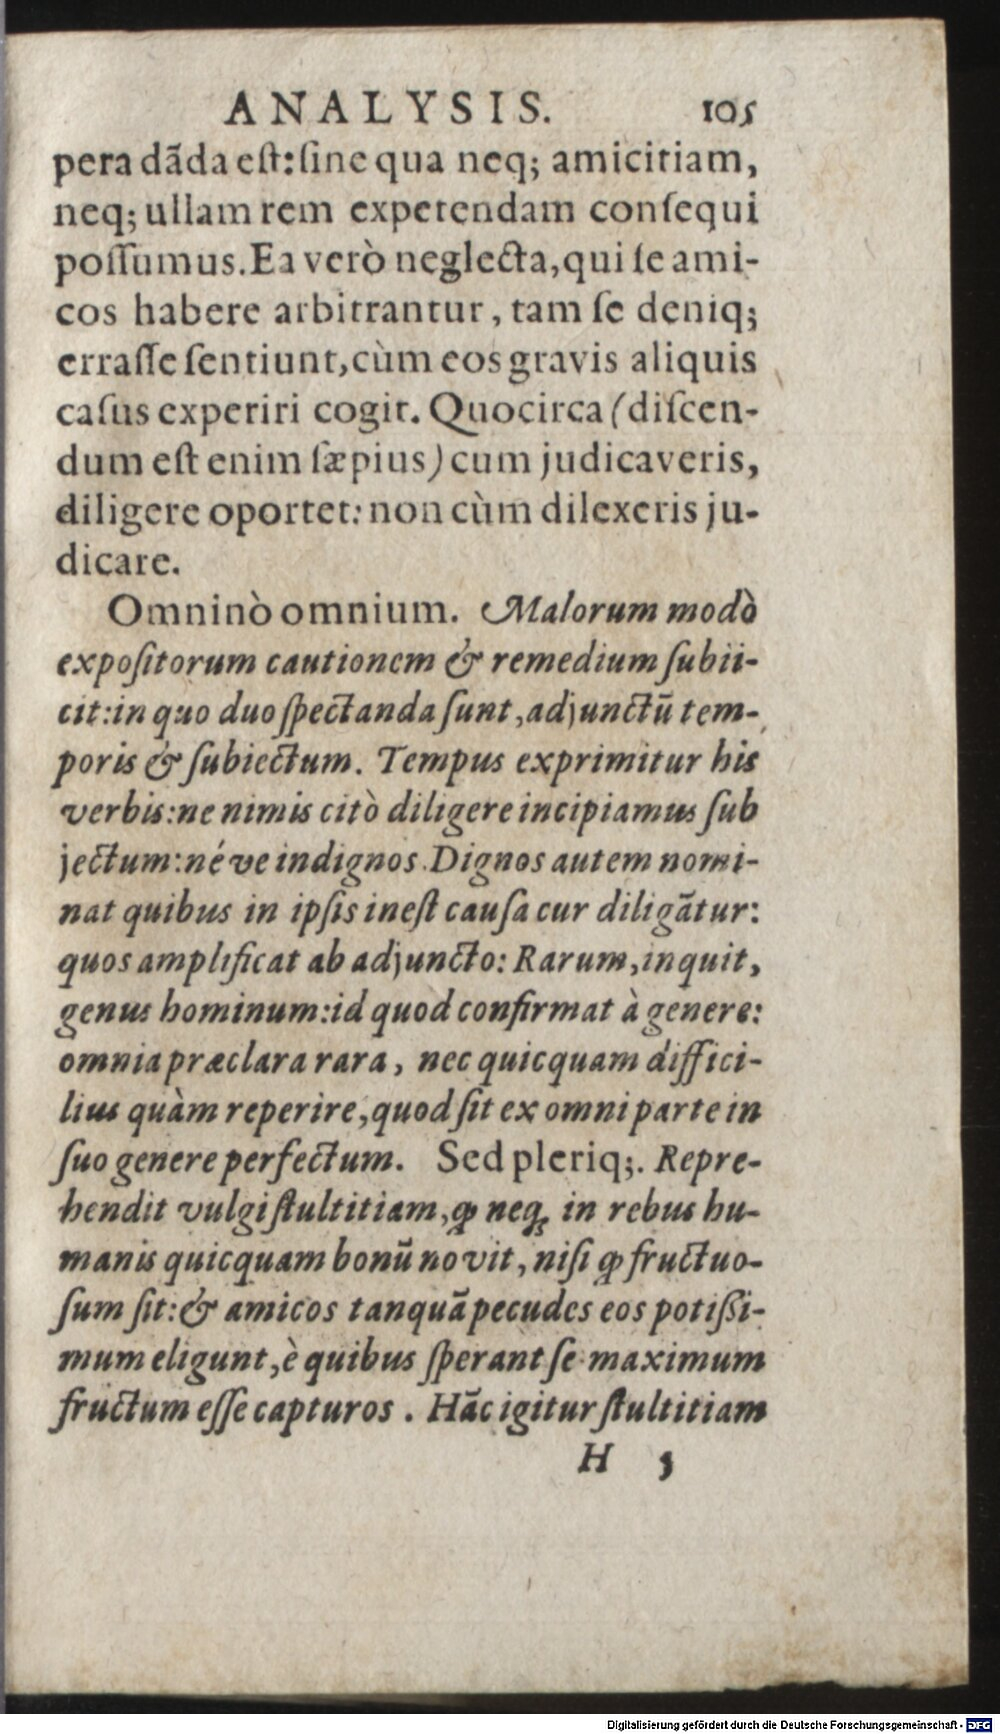 ANALYSIS. 105
pera dãda eſt: ſine qua neq; amicitiam,
neq; ullam rem expetendam conſequi
poſſumus. Ea verò neglecta, qui ſe ami-
cos habere arbitrantur, tam ſe deniq;
erraſſe ſentiunt, cùm eos gravis aliquis
caſus experiri cogit. Quocirca (diſcen-
dum eſt enim ſæpius) cum judicaveris,
diligere oportet: non cùm dilexeris ju-
dicare.
Omninò omnium. Malorum modò
expoſitorum cautionem & remedium ſubii-
cit: in quo duo ſpectanda ſunt, adjunctũ tem-
poris & ſubiectum. Tempus exprimitur his
verbis: ne nimis citò diligere incipiamus ſub
jectum: néve indignos. Dignos autem nomi-
nat quibus in ipſis ineſt cauſa cur diligãtur:
quos amplificat ab adjuncto: Rarum, inquit,
genus hominum: id quod confirmat à genere:
omnia præclara rara, nec quicquam diffici-
lius quàm reperire, quod ſit ex omni parte in
ſuo genere perfectum. Sed pleriq;. Repre-
hendit vulgi ſtultitiam, ꝙ neq; in rebus hu-
manis quicquam bonũ novit, niſi ꝙ fructuo-
ſum ſit: & amicos tanquã pecudes eos potiſſi-
mum eligunt, è quibus ſperant ſe maximum
fructum eſſe capturos. Hãc igitur ſtultitiam
H 3
Digitalisierung gefördert durch die Deutsche Forschungsgemeinschaft - DFG